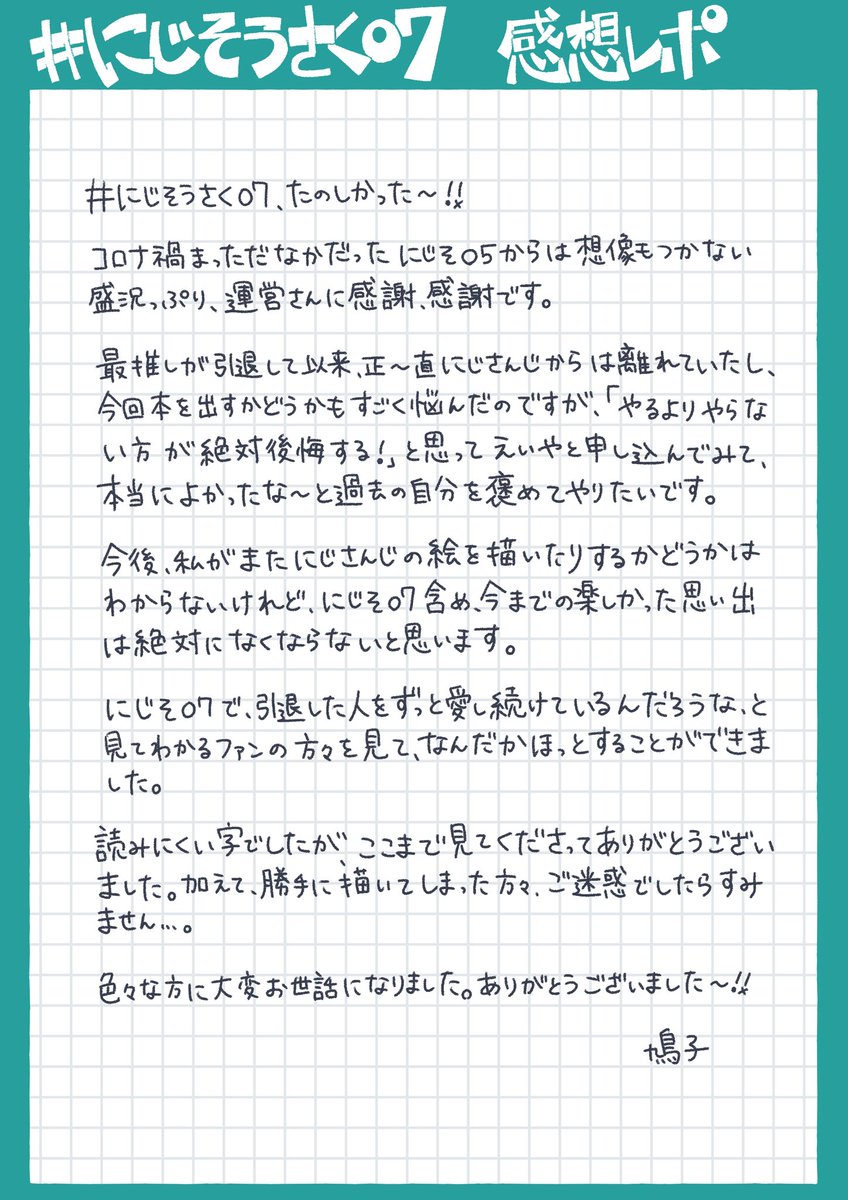 #にじそうさく07 感想レポ
#にじそうさく07、たのしかった〜!!
コロナ禍まっただなかだった にじそ05からは想像もつかない
盛況っぷり、運営さんに感謝、感謝です。
最推しが引退して以来、正〜直にじさんじからは離れていたし、
今回本を出すかどうかもすごく悩んだのですが、「やるよりやらな
い方が絶対後悔する!」と思って えいやと申し込んでみて、
本当によかったな〜と過去の自分を褒めてやりたいです。
今後、私がまたにじさんじの絵を描いたりするかどうかは
わからないけれど、にじそ07含め、今までの楽しかった思い出
は絶対になくならないと思います。
にじそ07で、引退した人をずっと愛し続けているんだろうな、と
見てわかるファンの方々を見て、なんだかほっとすることができま
した。
読みにくい字でしたが、ここまで見てくださってありがとうござい
ました。加えて、勝手に描いてしまった方々、ご迷惑でしたらすみ
ません…。
色々な方に大変お世話になりました。ありがとうございました〜!!
鳩子